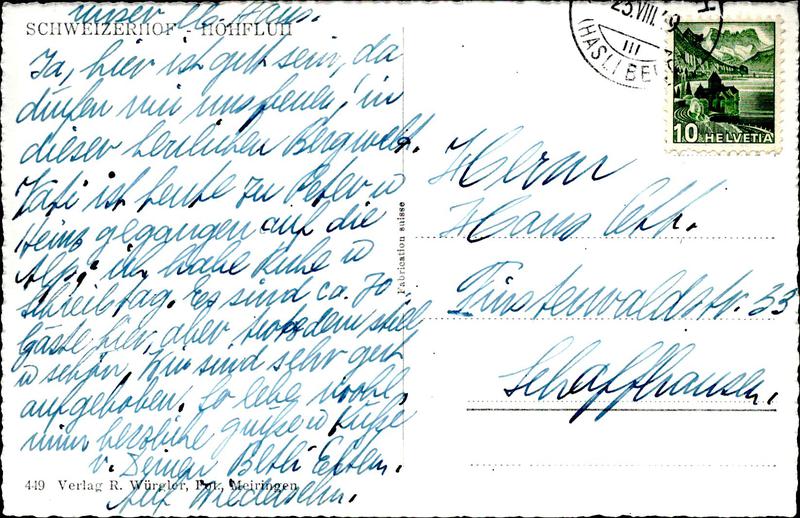 unser lb. Hans.
SCHWEIZERHOF - HOHFLUH
Ja, hier ist gut sein, da
dürfen wir uns freuen! in
dieser herrlichen Bergwelt.
Vati ist heute zu Peter u
Heinz gegangen auf die
Alp, ich habe Ruhe u
Schreibtag. Es sind ca. 70
Gäste hier, aber trotzdem still
u schön. Wir sind sehr gut
aufgehoben. So lebe wohl,
nimm herzliche Grüsse u Küsse
v. Deinen Eltern.
Auf Wiedersehn.
449 Verlag R. Würgler, Meiringen
Fabrication suisse
25.VIII.49
III
(HASLIBERG)
10 HELVETIA
Herrn
Hans
Finsterwaldstr. 33
Schaffhausen.